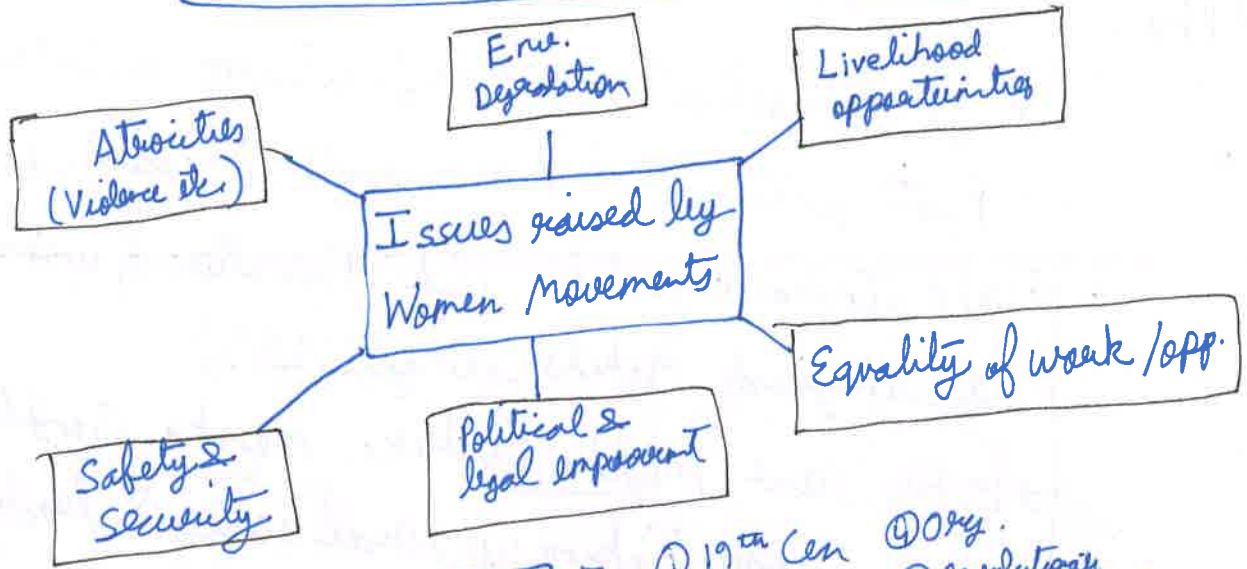 Env.
Degradation
Livelihood
opportunities
Atrocities
(Violence etc.)
Issues raised by
Women Movements
Equality of work/opp.
Political &
legal
Safety &
security
① 19th Cen ④ Org.